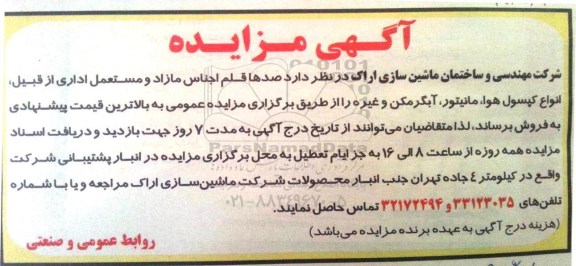 آگهی مزایده
شرکت مهندسی و ساختمان ماشین سازی اراک در نظر دارد صدها قلم اجناس مازاد و مستعمل اداری از قبیل،
انواع کپسول هوا، مانیتور، آبگرمکن و غیزه را از طریق برگزاری مزایده عمومی به بالاترین قیمت پیشنهادی
به فروش برساند، لذا متقاضیان می‌توانند از تاریخ درج آگهی به مدت ۷ روز جهت بازدید و دریافت اسناد
مزایده همه روزه از ساعت ۸ الی ۱۶ به جز ایام تعطیل به محل برگزاری مزایده در انبار پشتیبانی شرکت
واقع در کیلومتر ۴ جاده تهران جنب انبار محصولات شرکت ماشین‌سازی اراک مراجعه و یا با شماره
تلفن‌های ۳۳۱۲۳۰۳۵ و ۳۲۱۷۲۴۹۴ تماس حاصل نمایند.
(هزینه درج آگهی به عهده برنده مزایده می‌باشد)
روابط عمومی و صنعتی
ParsNamadData